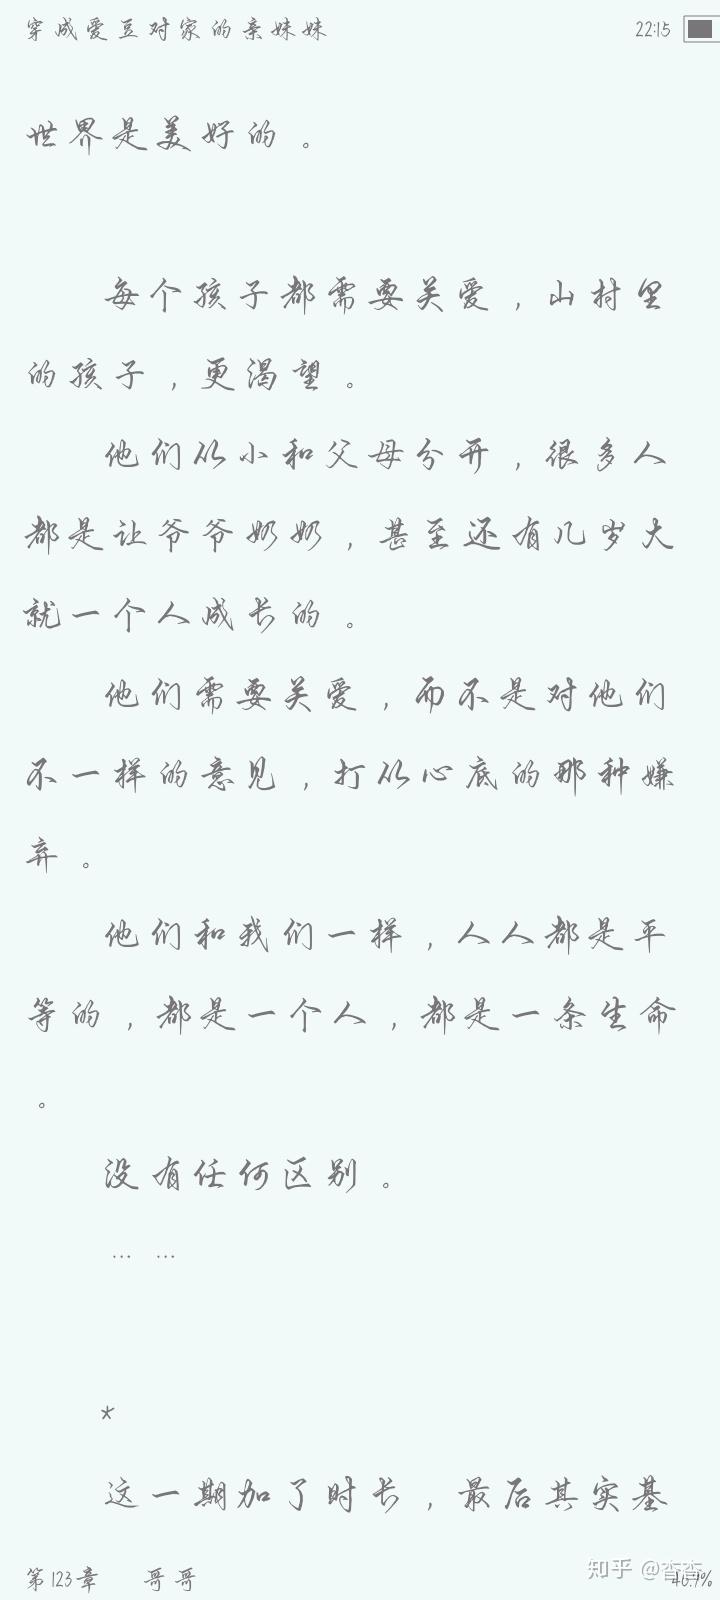 穿成爱豆对家的亲妹妹 22:15
世界是美好的。
每个孩子都需要关爱，山村里
的孩子，更渴望。
他们从小和父母分开，很多人
都是让爷爷奶奶，甚至还有几岁大
就一个人成长的。
他们需要关爱，而不是对他们
不一样的意见，打从心底的那种嫌
弃。
他们和我们一样，人人都是平
等的，都是一个人，都是一条生命
。
没有任何区别。
……
*
这一期加了时长，最后其实基
第123章 哥哥
知乎 @杳杳